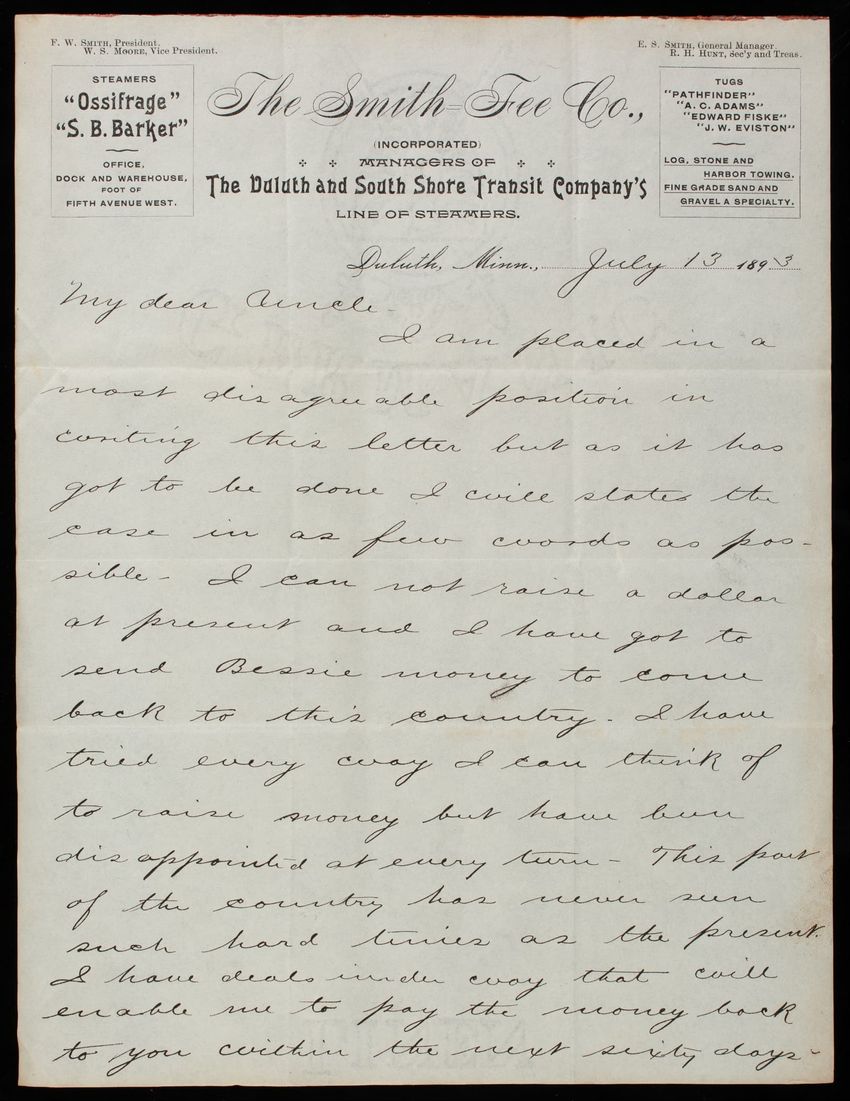 F. W. Smith, President.
W. S. Moore, Vice President.
E. S. Smith, General Manager.
R. H. Hunt, Sec'y and Treas.
STEAMERS
"Ossifrage"
"S. B. Barker"
OFFICE,
DOCK AND WAREHOUSE,
FOOT OF
FIFTH AVENUE WEST.
The Smith-Fee Co.,
(INCORPORATED)
MANAGERS OF
The Duluth and South Shore Transit Company's
LINE OF STEAMERS.
TUGS
"PATHFINDER"
"A. C. ADAMS"
"EDWARD FISKE"
"J. W. EVISTON"
LOG, STONE AND
HARBOR TOWING.
FINE GRADE SAND AND
GRAVEL A SPECIALTY.
Duluth, Minn., July 13 1893
My dear Uncle-
I am placed in a
most disagreeable position in
writing this letter but as it has
got to be done I will state the
case in as few words as pos-
sible- I can not raise a dollar
at present and I have got to
send Bessie money to come
back to this country. I have
tried every way I can think of
to raise money but have been
disappointed at every turn- This part
of the country has never seen
such hard times as the present.
I have deals under way that will
enable me to pay the money back
to you within the next sixty days-